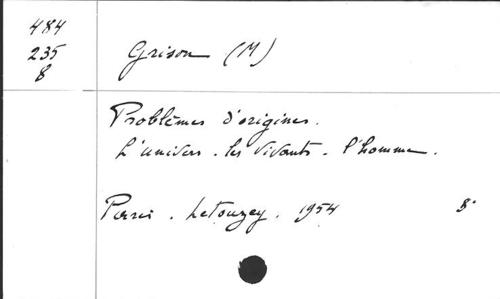 484
235
8
Grison (M)
Problèmes d'origines.
L'univers. les vivants. l'homme.
Paris. Letouzey. 1954 8°